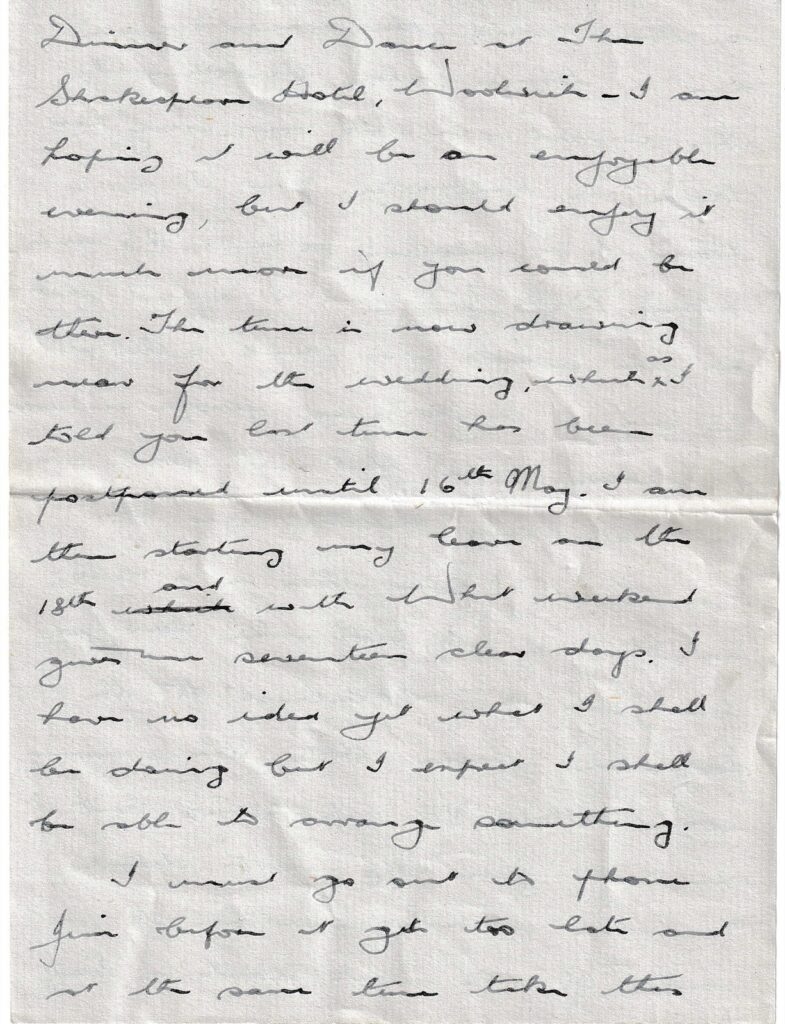 Dinner and Dance at The
Shakespeare Hotel, Woolwich - I am
hoping it will be an enjoyable
evening, but I should enjoy it
much more if you could be
there. The time is now drawing
near for the wedding, which as I
told you last time has been
postponed until 16th May. I am
then starting my leave on the
18th which and with Whit weekend
gives me seventeen clear days. I
have no idea yet what I shall
be doing but I expect I shall
be able to arrange something.
I must go out to phone
Jim before it gets too late and
at the same time take this